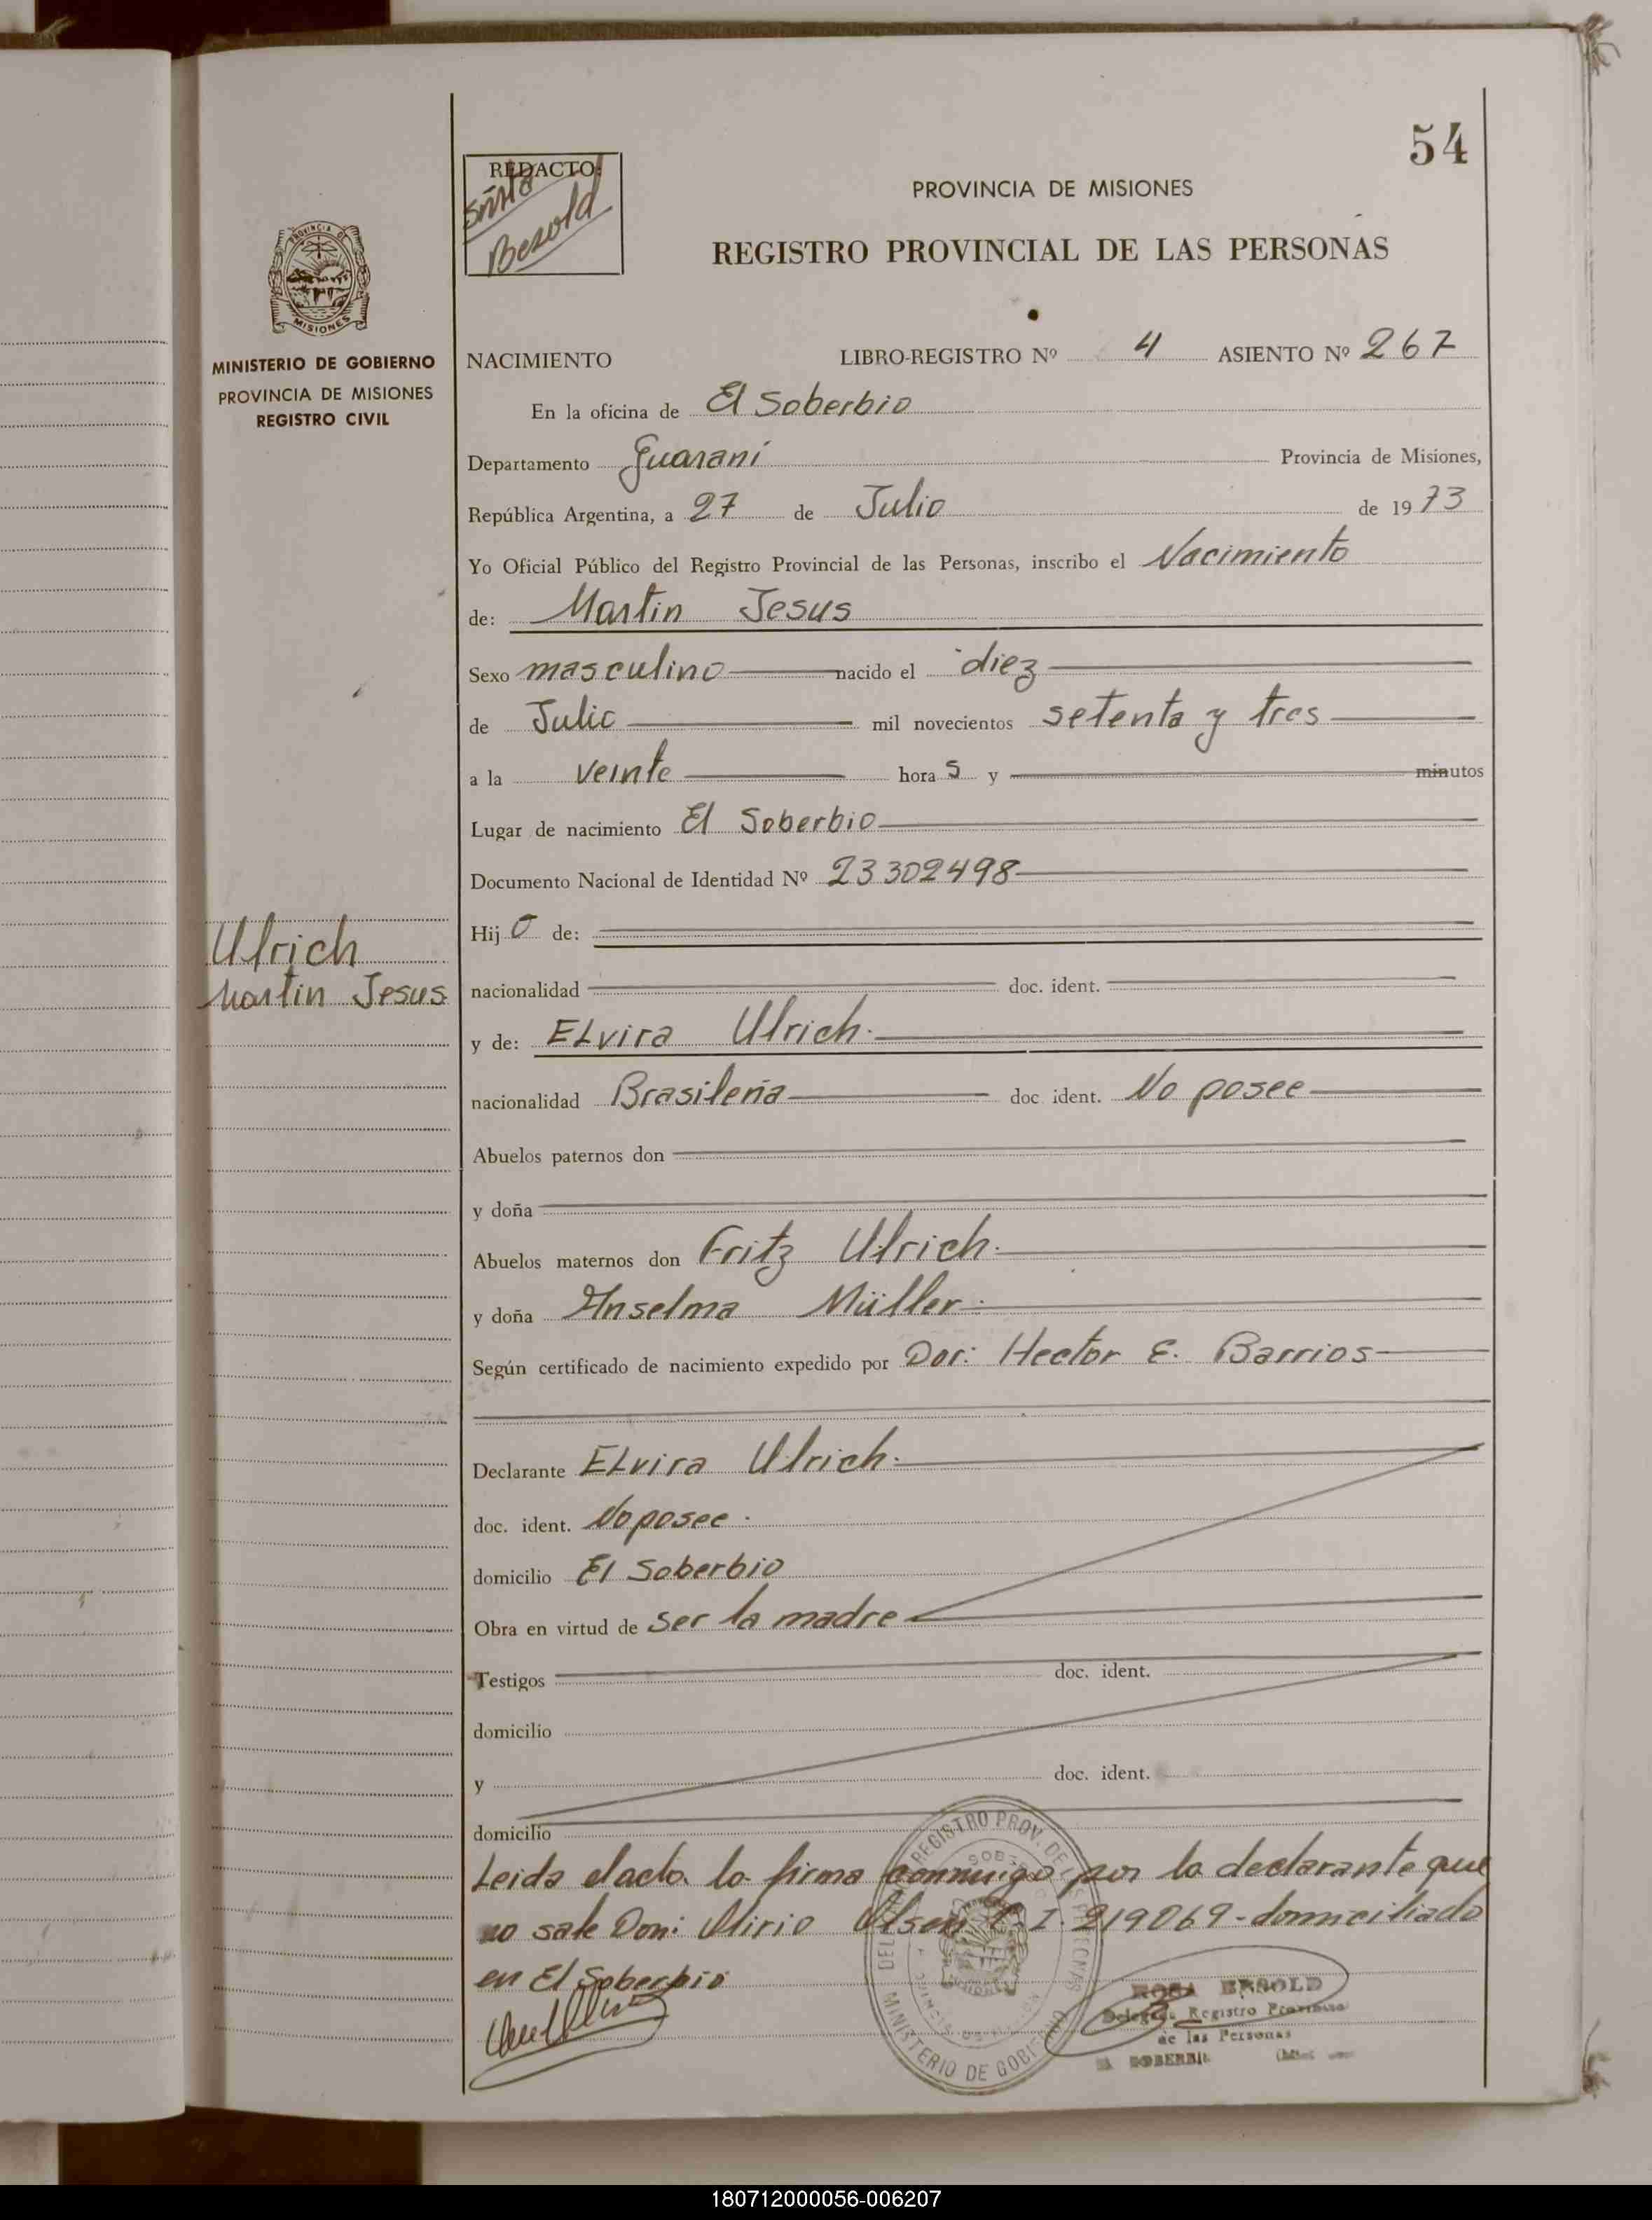 54
REDACTO:
Srita
Bezold
PROVINCIA DE MISIONES
REGISTRO PROVINCIAL DE LAS PERSONAS
PROVINCIA DE
MISIONES
MINISTERIO DE GOBIERNO
PROVINCIA DE MISIONES
REGISTRO CIVIL
NACIMIENTO LIBRO-REGISTRO Nº 4 ASIENTO Nº 267
En la oficina de El Soberbio
Departamento Guaraní Provincia de Misiones,
República Argentina, a 27 de Julio de 1973
Yo Oficial Público del Registro Provincial de las Personas, inscribo el Nacimiento
de: Martin Jesus
Sexo masculino nacido el diez
de Julio mil novecientos setenta y tres
a la veinte hora s y minutos
Lugar de nacimiento El Soberbio
Documento Nacional de Identidad Nº 23302498
Hij o de:
Ulrich
Martin Jesus
nacionalidad doc. ident.
y de: Elvira Ulrich.
nacionalidad Brasileña doc. ident. No posee
Abuelos paternos don
y doña
Abuelos maternos don Fritz Ulrich.
y doña Anselma Müller.
Según certificado de nacimiento expedido por Dor: Hector E. Barrios
Declarante Elvira Ulrich.
doc. ident. No posee.
domicilio El Soberbio
Obra en virtud de ser la madre
Testigos doc. ident.
domicilio
y doc. ident.
domicilio
Leida el acta la firma conmigo por la declarante que
no sabe Don: Alirio C.I. 219069-domiciliado
en El Soberbio
REGISTRO PROV. DE LAS PERSONAS
MINISTERIO DE GOBIERNO
ROSA BEZOLD
Delegada Registro Provincial
de las Personas
EL SOBERBIO
180712000056-006207